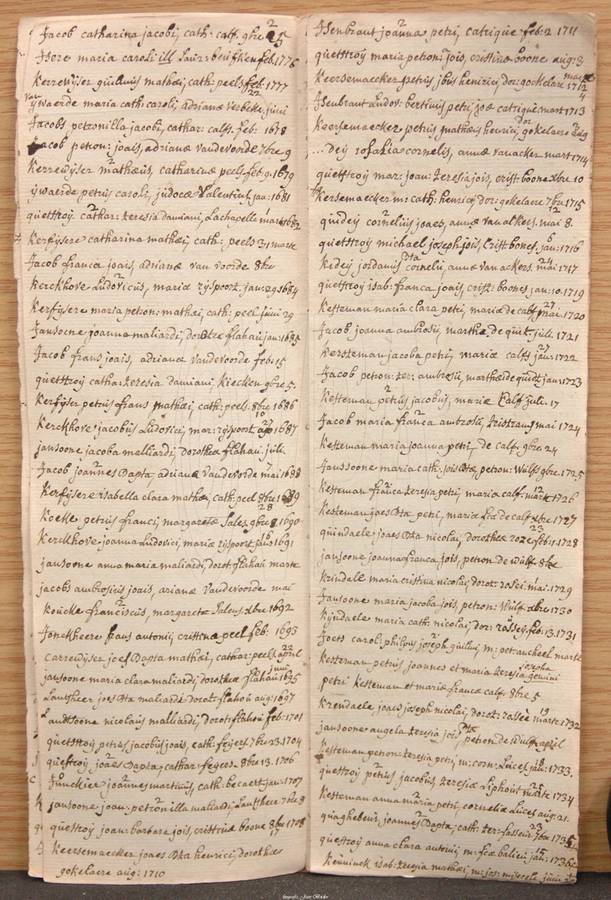 Jacob catharina jacobi, cath: calf. 9bre 25
Isore maria caroli ill
Kerrewÿser guillmus mathei, cath: peels feb: 1777
ÿwaerde maria cath: caroli, adrianæ Verbeke, juni
Jacobs petronilla jacobi, cathar: calf. feb: 1678
Jacob petron: joais, adrianæ vandevorde 7bre 9
Kerrewÿser mathæus, catharinæ peels feb: 9. 1679
ÿwaerde petrus caroli, judocæ Valentins, jan: 1681
quettroÿ cathar: teresia damiani, Lachapelle mart 1682
Kerfÿsere catharina mathæi, cath: peels 31 marte
Jacob franca joais, adrianæ van voorde 8bre
Kerckhove Ludovicus, mariæ rÿspoort, jan: 29 1684
Kerfÿsere maria petron: mathei, cath: peel juni 29
Jansoene joanna maliardi, dorotea flahau jan: 1685
Jacob frans joais, adrianæ vandevoorde feb: 15
quettroÿ catha: teresia damiani, Kiecken 9bre 5.
Kerfÿser petrus frans mathæi, cath: peels. 8bre 1686
Kerckhove jacobus Ludovici, mar: rÿspoort 1687
jansoone jacoba melliardi, dorothea flahau. juli.
Jacob joannes Bapta, adrianæ vandevorde mai 1688
Kerfÿsere isabella clara mathæi, cath: peel 8bre 1689
Koeke petrus franci, margaretæ Sales, 9bre 1690
Kerckhove joanna Ludovici, mariæ rÿspoort 1691
jansoone anna maria maliardi, dorot: flahau marte
jacobs ambrosius joais, arianæ vandevoorde mai
Koucke franciscus, margareta Saleus xbre 1692
Jonckheere frans antonii, cristina peel feb: 1693
Carrewÿser joes Bapta mathæi, cathar: peels april
jansoone maria clara maliardi, dorothea flahau 1695
Lantsheer joes Bta maliardi dorot: flahau aug: 1697
Landtsoone nicolaus malliardi, dorot: flahou feb: 1701
quettroÿ petrus jacobus joais, cath: feijers 7bre 13. 1704
quettroÿ joaes Bapta, cathar feijers 8bre 13. 1706
Junckier joannes martinus, cath: becaert jan: 1707
jansoone joan: petronilla maliardi, Lantsheer 7bre 8
quettroÿ joan: barbara jois, cristinæ boone 8bre 1708
Keersemaecker joaes Bta henrici, dorotheæ
gokelaere aug: 1710
Isenbraut joanna petri, catrique feb: 2 1711
quettroÿ maria petroni jois, cristina boone aug: 3
Keersemaecker petrus jbus henrici, dor: gokelare 1712
Isenbraut Ludov: bertinus petri, joæ catrique mart 1713
Keersemaecker petrus mathæus henrici, dor: gokelaere
deÿ rosalia cornelis, annæ vanacker mart 1714
quettroÿ mar: joan: teresia jois, crist: boone xbre 10
Kersemaecker m: cath: henrici, dor: gokelaere 7bre 1715
quideÿ cornelius joaes, annæ van alkers. mai 8.
quettroÿ michael joseph jois, Crist boones. jan: 1716
Kideÿ jordanus cornelii, annæ van ackers. mai 1717
quettroÿ isab: franca joais, crist: boones jan: 10. 1719
Kesteman maria clara petri, mariæ de calf mar. 1720
Jacob joanna ambrosii, martha de quidt juli. 1721
Kersteman jacoba petri, mariæ calf jan: 1722
Jacob petron: ter: ambrosii, marthæ de quidt jan: 1723
Kesteman petrus jacobus, mariæ Calf juli. 17
Jacob maria franca ambrosii, mai 1724
Kesteman maria joanna petri, de calf 9bre 24
Janssoone maria cath: jois Bta petron: Wulf 9bre 1725
Kesteman franca teresia petri, maria calf. mart 1726
Kesteman joaes Bta petri, maria fca de calf xbre 1727
quindaele joaes Bta nicolai, dorothea feb: 1728
jansoone joanna franca jois, petron: de wulf 8bre
Krindale maria cristina nicolai, dorot: mai. 1729
Jansoone maria jacoba jois, petron: Wulf xbre 1730
Kÿndaele maria cath: nicolai, dor: feb: 13. 1731
Joets carol: philipus joseph guilmi, m: pet: marte
Kesteman petrus joannes et maria teresia josepha gemini
petri Kesteman et mariæ francæ calf. 8bre 5
Krendaele joaes joseph nicolai, dorot: marte 1732
jansoone angela teresia jois, petron: de wulf april
Kesteman petron: teresia petri, m: corn: Lucex jan: 1733.
quettroÿ petrus jacobus, teresiæ marte 1734
Kesteman anna maria petri, corneliæ Lucex aug: 21.
quaghebeur joannes Bapta, cath: ter: 1735
quettroÿ anna clara antonii, m: fca jan: 1736
Kenninck isab: teresia mathæi, m: jos: juni